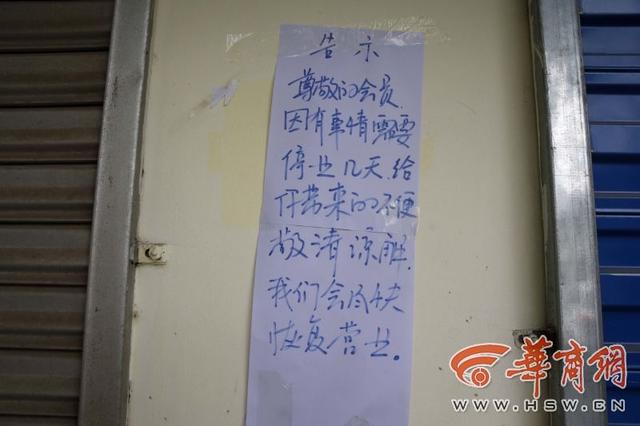 告示
尊敬的会员
因有事情需要
停业几天.给
你带来的不便
敬请谅解.
我们会尽快
恢复营业.
华商网
WWW.HSW.CN